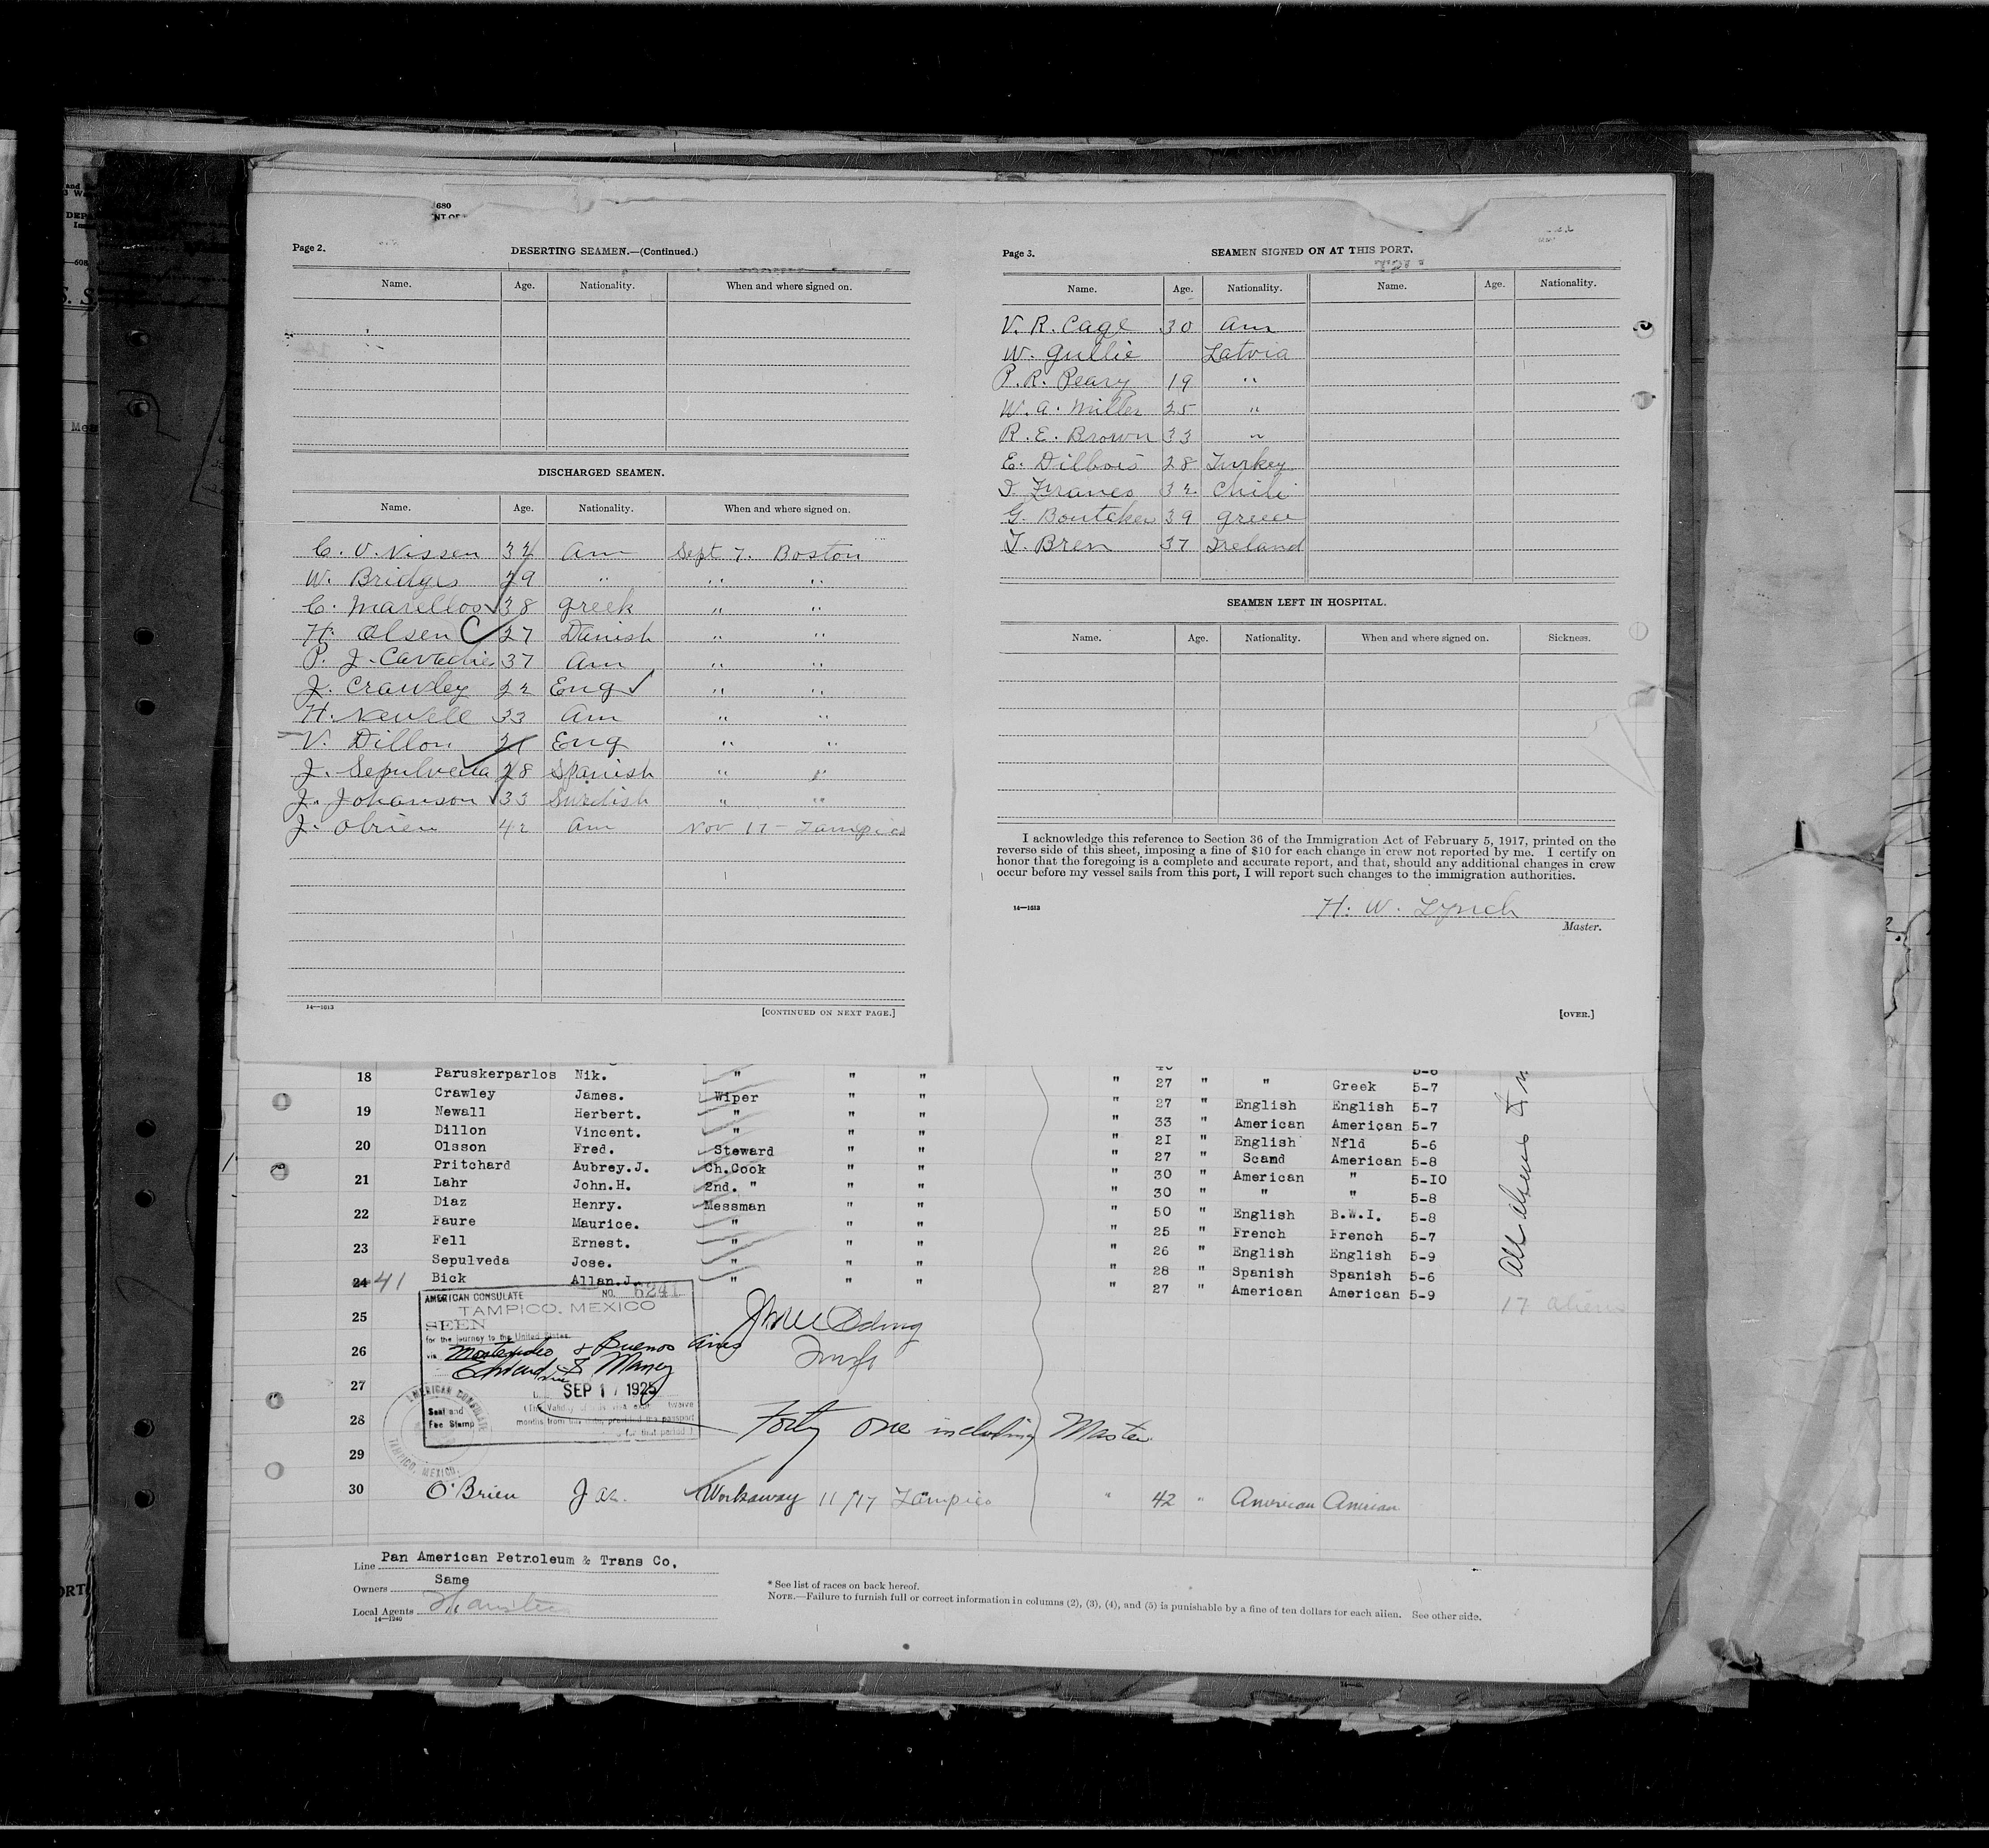 680
Page 2.
DESERTING SEAMEN.—(Continued.)
Name. Age. Nationality. When and where signed on.
DISCHARGED SEAMEN.
Name. Age. Nationality. When and where signed on.
C. V. Nissen 34 Am Sept 7. Boston
W. Bridges 29 " " "
C. Marellos 38 Greek " "
H. Olsen C 27 Danish " "
P. J. 37 Am " "
J. Crawley 22 Eng " "
H. Newell 33 Am " "
V. Dillon 21 Eng " "
J. Sepulveda 28 Spanish " "
J. Johanson 33 Swedish " "
J. Obrien 42 Am Nov 17 - Tampico
14—1613
[CONTINUED ON NEXT PAGE.]
Page 3.
SEAMEN SIGNED ON AT THIS PORT.
Name. Age. Nationality. Name. Age. Nationality.
V. R. Cage 30 Am
W. Gullie Latvia
P. R. Peary 19 "
W. A. Miller 25 "
R. E. Brown 33 "
E. Dilbois 28 Turkey
34 Chili
G. 39 Greece
T. Bren 37 Ireland
SEAMEN LEFT IN HOSPITAL.
Name. Age. Nationality. When and where signed on. Sickness.
I acknowledge this reference to Section 36 of the Immigration Act of February 5, 1917, printed on the
reverse side of this sheet, imposing a fine of $10 for each change in crew not reported by me. I certify on
honor that the foregoing is a complete and accurate report, and that, should any additional changes in crew
occur before my vessel sails from this port, I will report such changes to the immigration authorities.
14—1613
H. W. Lynch
Master.
[OVER.]
18 Paruskerparlos Nik. " " " " 27 " " Greek 5-7
Crawley James. Wiper " " " 27 " English English 5-7
19 Newall Herbert. " " " " 33 " American American 5-7
Dillon Vincent. " " " " 21 " English Nfld 5-6
20 Olsson Fred. Steward " " " 27 " Scand American 5-8
Pritchard Aubrey.J. Ch.Cook " " " 30 " American " 5-10
21 Lahr John.H. 2nd. " " " " 30 " " " 5-8
Diaz Henry. Messman " " " 50 " English B.W.I. 5-8
22 Faure Maurice. " " " " 25 " French French 5-7
Fell Ernest. " " " " 26 " English English 5-9
23 Sepulveda Jose. " " " " 28 " Spanish Spanish 5-6
24 41 Bick Allan.J. " " " " 27 " American American 5-9
17 aliens
AMERICAN CONSULATE NO. 6241
TAMPICO, MEXICO
SEEN
for the journey to the United States
via Montevideo & Buenos Aires
SEP 17 1925
Seal and
Fee Stamp
AMERICAN CONSULATE
TAMPICO, MEXICO.
25
26
27
28 Forty one including Master
29
30 O'Brien Jas. Workaway 11/17 Tampico " 42 " American American
Line Pan American Petroleum & Trans Co.
Owners Same
Local Agents
14—1240
* See list of races on back hereof.
NOTE.—Failure to furnish full or correct information in columns (2), (3), (4), and (5) is punishable by a fine of ten dollars for each alien. See other side.